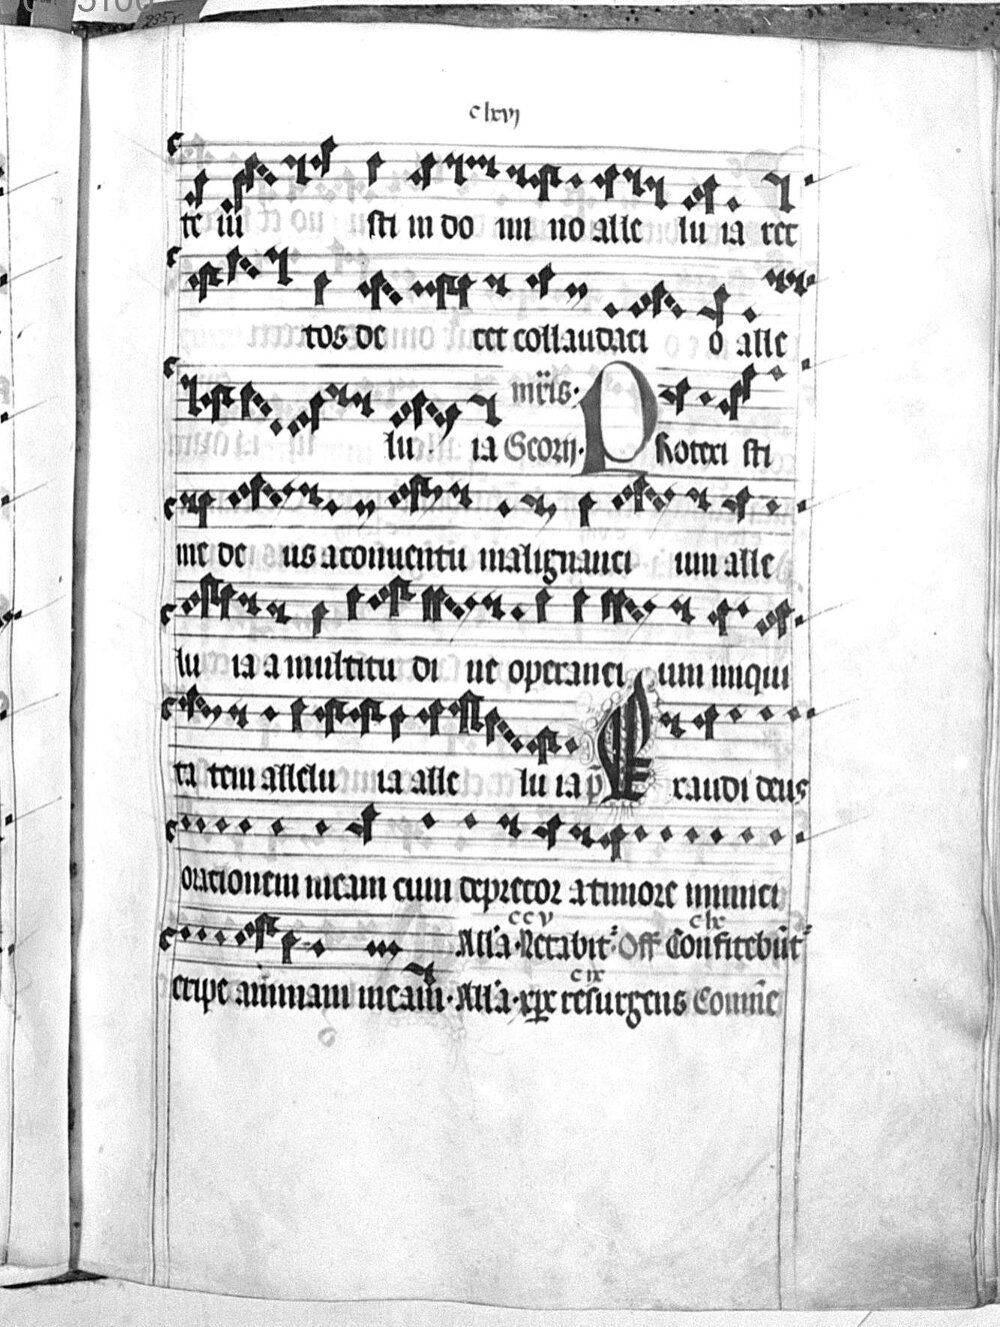 clxvj
te iu sti in do mi no alle lu ia rec
tos de cet collaudaci o alle
mr̄is·
lu ia Georij· P Rotexi sti
me de us a conuentu malignanci um alle
lu ia a multitu di ne operanci um iniqui
ta tem allelu ia alle lu ia p̄s E xaudi deus
orationem meam cum deprecor a timore inimici
ccv clx
All'a· Letabit᷑ Off Confitebūt᷑
cix
eripe animam meam· All'a· xp̄c resurgens Commē